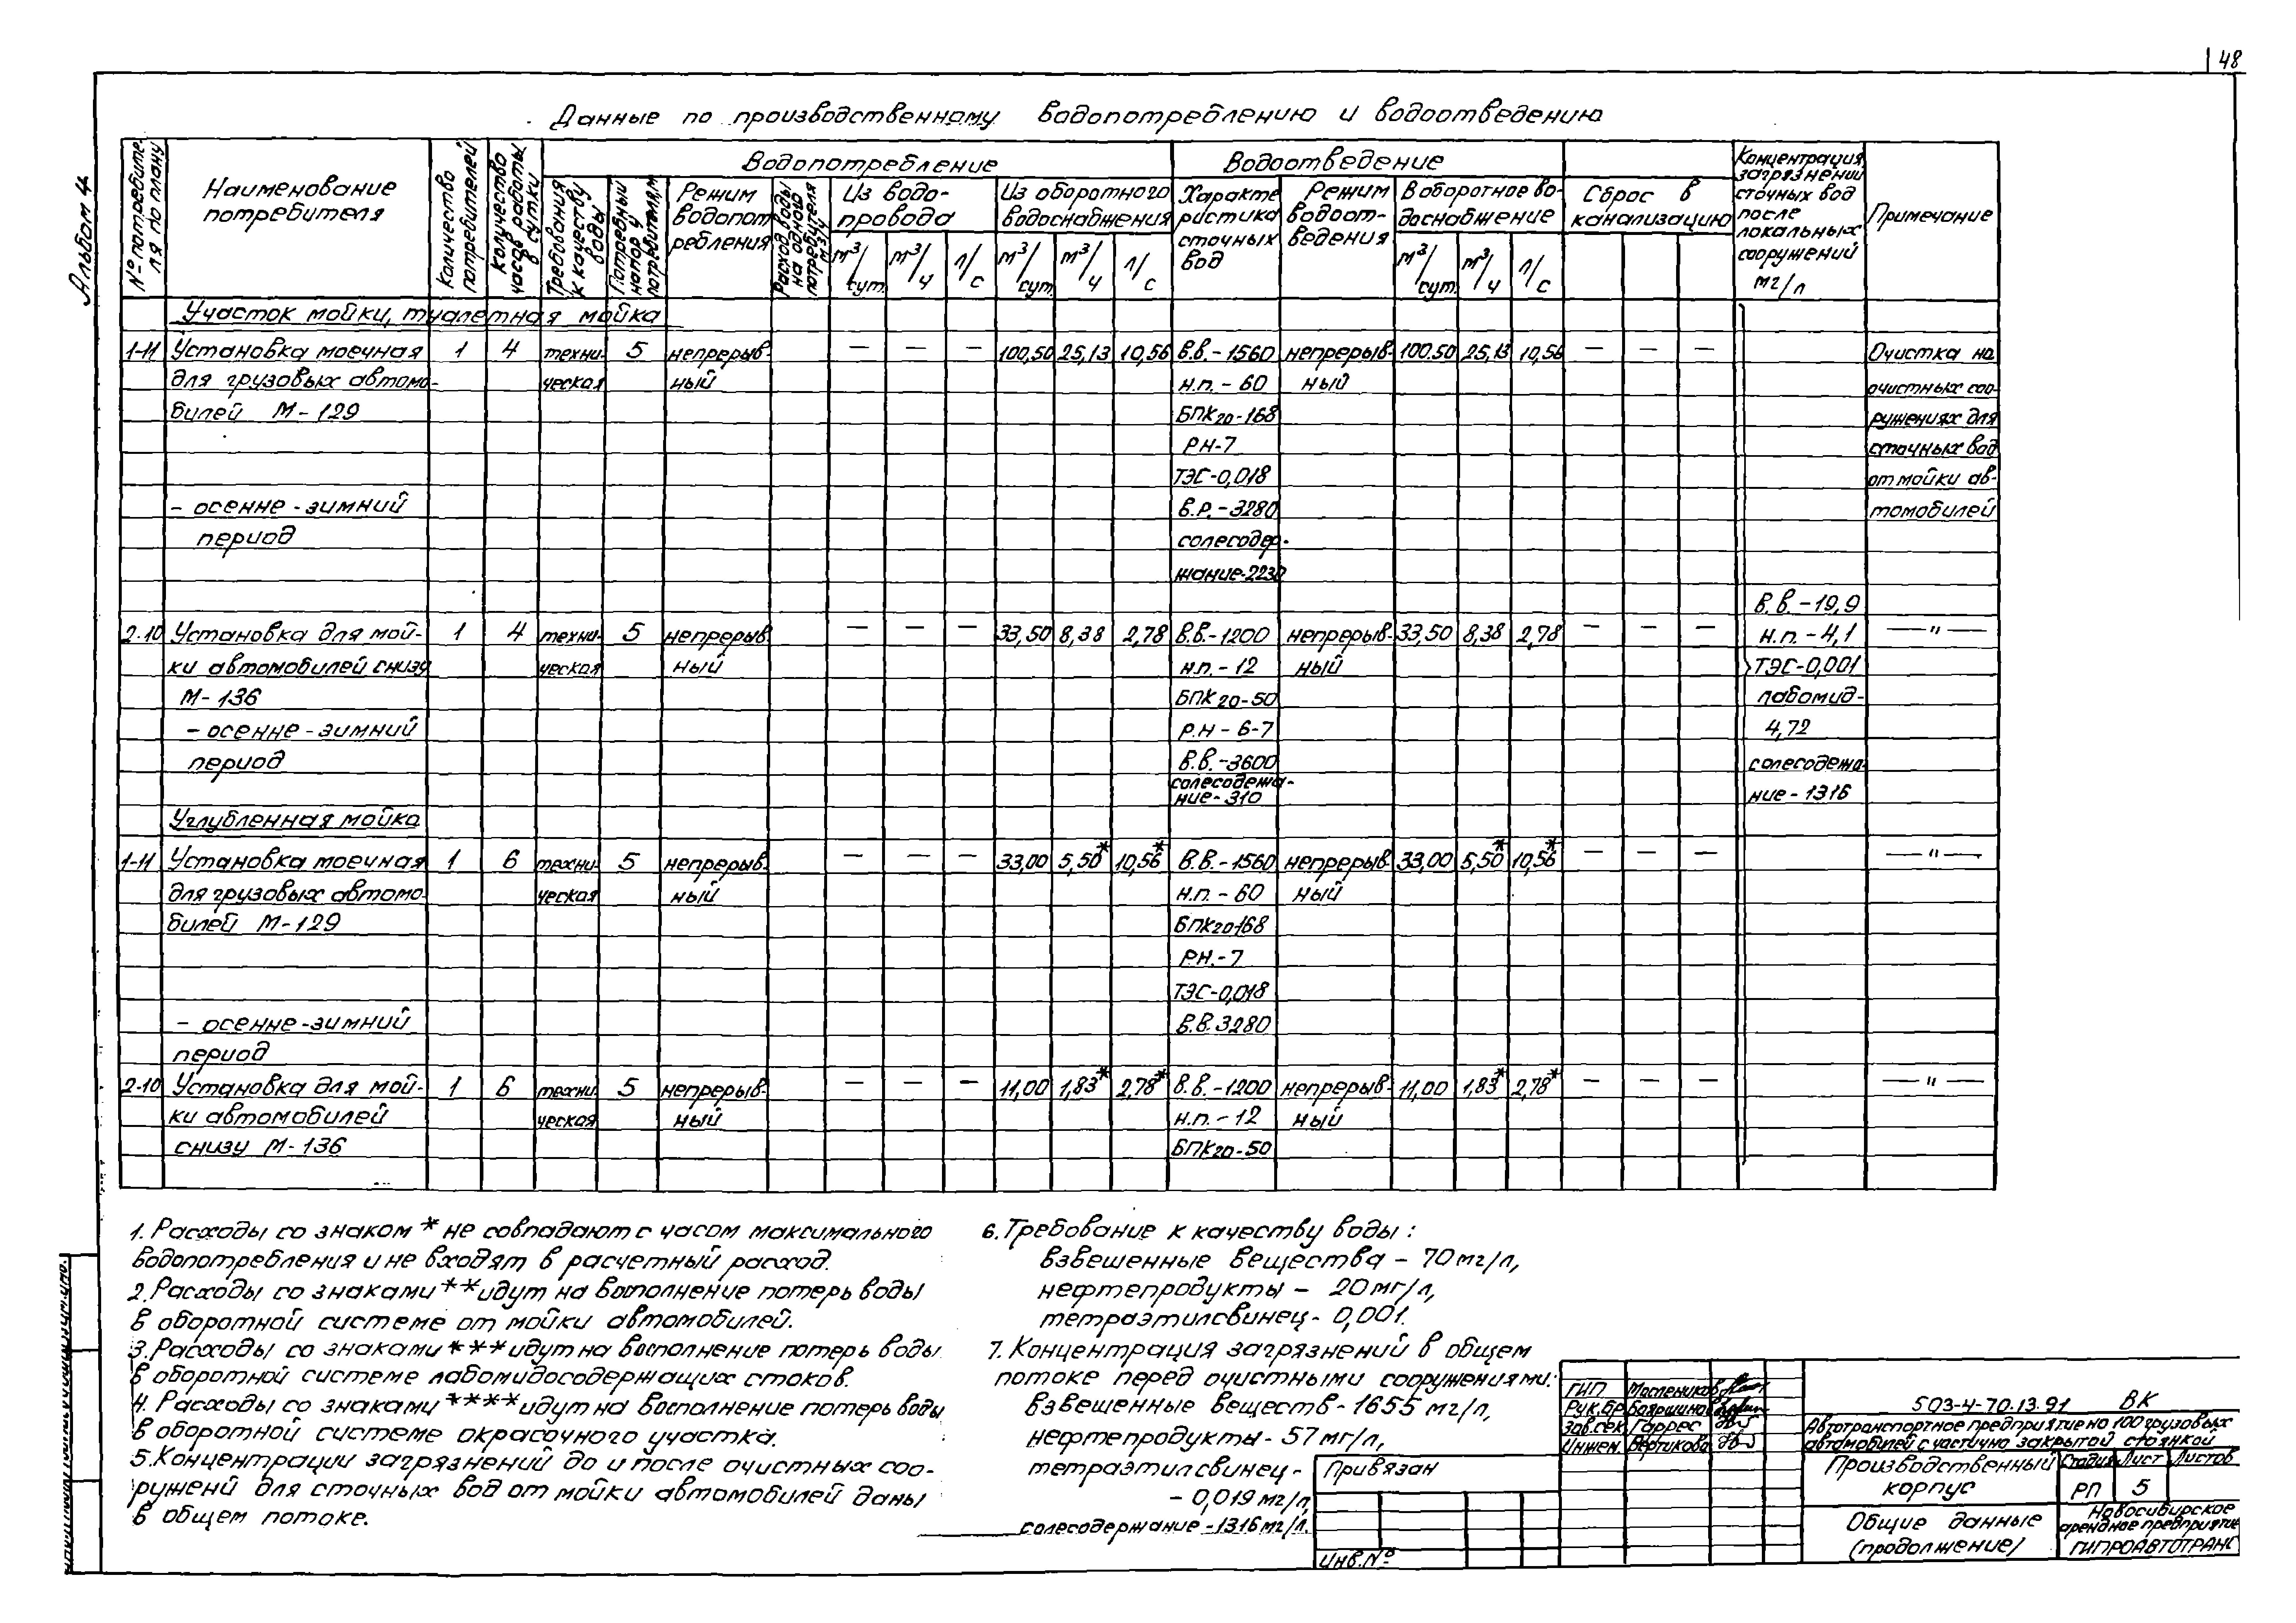 48
Альбом 4
Данные по производственному водопотреблению и водоотведению
№ потребите-
ля по плану
Наименование
потребителя
Количество
потребителей
Количество
часов работы
в сутки
Водопотребление
Требования
к качеству
воды
Потребный
напор у
потребителя, м
Режим
водопот
ребления
Расход воды
на одного
потребителя
м3/ч
Из водо-
провода
м3/сут. м3/ч л/с
Из оборотного
водоснабжения
м3/сут. м3/ч л/с
Водоотведение
Характе
ристика
сточных
вод
Режим
водоот-
ведения
В оборотное во-
доснабжение
м3/сут. м3/ч л/с
Сброс в
канализацию
Концентрация
загрязнений
сточных вод
после
локальных
сооружений
мг/л
Примечание
Участок мойки, туалетная мойка
1-11 Установка моечная 1 4 техни- 5 непрерыв- — — — 100,50 25,13 10,56 В.в.-1560 непрерыв- 100,50 25,13 10,56 — — — Очистка на
для грузовых автомо- ческая ный н.п. - 60 ный очистных соо-
билей М-129 БПК20-168 ружениях для
РН-7 сточных вод
ТЭС-0,018 от мойки ав-
- осенне-зимний В.Р.-3280 томобилей
период солесодер-
жание-2230
В.в.-19,9
2-10 Установка для мой- 1 4 техни- 5 непрерыв — — — 33,50 8,38 2,78 В.в.-1200 непрерыв- 33,50 8,38 2,78 — — — н.п.-4,1 — " —
ки автомобилей снизу ческая ный н.п.-12 ный ТЭС-0,001
М-136 БПК20-50 лабомид-
- осенне-зимний Р.Н - 6-7 4,72
период В.в.-3600 солесодежа-
солесодежа-
ние-310 ние-1316
Углубленная мойка
1-11 Установка моечная 1 6 техни- 5 непрерыв- — — — 33,00 5,50* 10,56* В.В.-1560 непрерыв- 33,00 5,50* 10,56* — — — — " —
для грузовых автомо- ческая ный н.п.-60 ный
билей М-129 БПК20-168
РН.-7
ТЭС-0,018
- осенне-зимний В.В.3280
период
2-10 Установка для мой- 1 6 техни- 5 непрерыв- — — — 11,00 1,83* 2,78* В.в.-1200 непрерыв- 11,00 1,83* 2,78* — — — — " —
ки автомобилей ческая ный н.п.-12 ный
снизу М-136 БПК20-50
1. Расходы со знаком * не совпадают с часом максимального
водопотребления и не входят в расчетный расход.
2. Расходы со знаками ** идут на восполнение потерь воды
в оборотной системе от мойки автомобилей.
3. Расходы со знаками *** идут на восполнение потерь воды
в оборотной системе лабомидосодержащих стоков.
4. Расходы со знаками **** идут на восполнение потерь воды
в оборотной системе окрасочного участка.
5. Концентрации загрязнений до и после очистных соо-
ружений для сточных вод от мойки автомобилей даны
в общем потоке.
6. Требование к качеству воды:
взвешенные вещества - 70 мг/л,
нефтепродукты - 20 мг/л,
тетраэтилсвинец - 0,001.
7. Концентрация загрязнений в общем
потоке перед очистными сооружениями:
взвешенные веществ - 1655 мг/л,
нефтепродукты - 57 мг/л,
тетраэтилсвинец -
- 0,019 мг/л,
солесодержание - 1316 мг/л.
Привязан
Инв.№
ГИП Маслеников
Рук.бр Бояршинова
Зав.сек. Гаррес
Инжен. Вертикова
503-4-70.13.91 ВК
Автотранспортное предприятие на 100 грузовых
автомобилей с частично закрытой стоянкой
Производственный
корпус
Стадия Лист Листов
РП 5
Общие данные
(продолжение)
Новосибирское
арендное предприятие
ГИПРОАВТОТРАНС